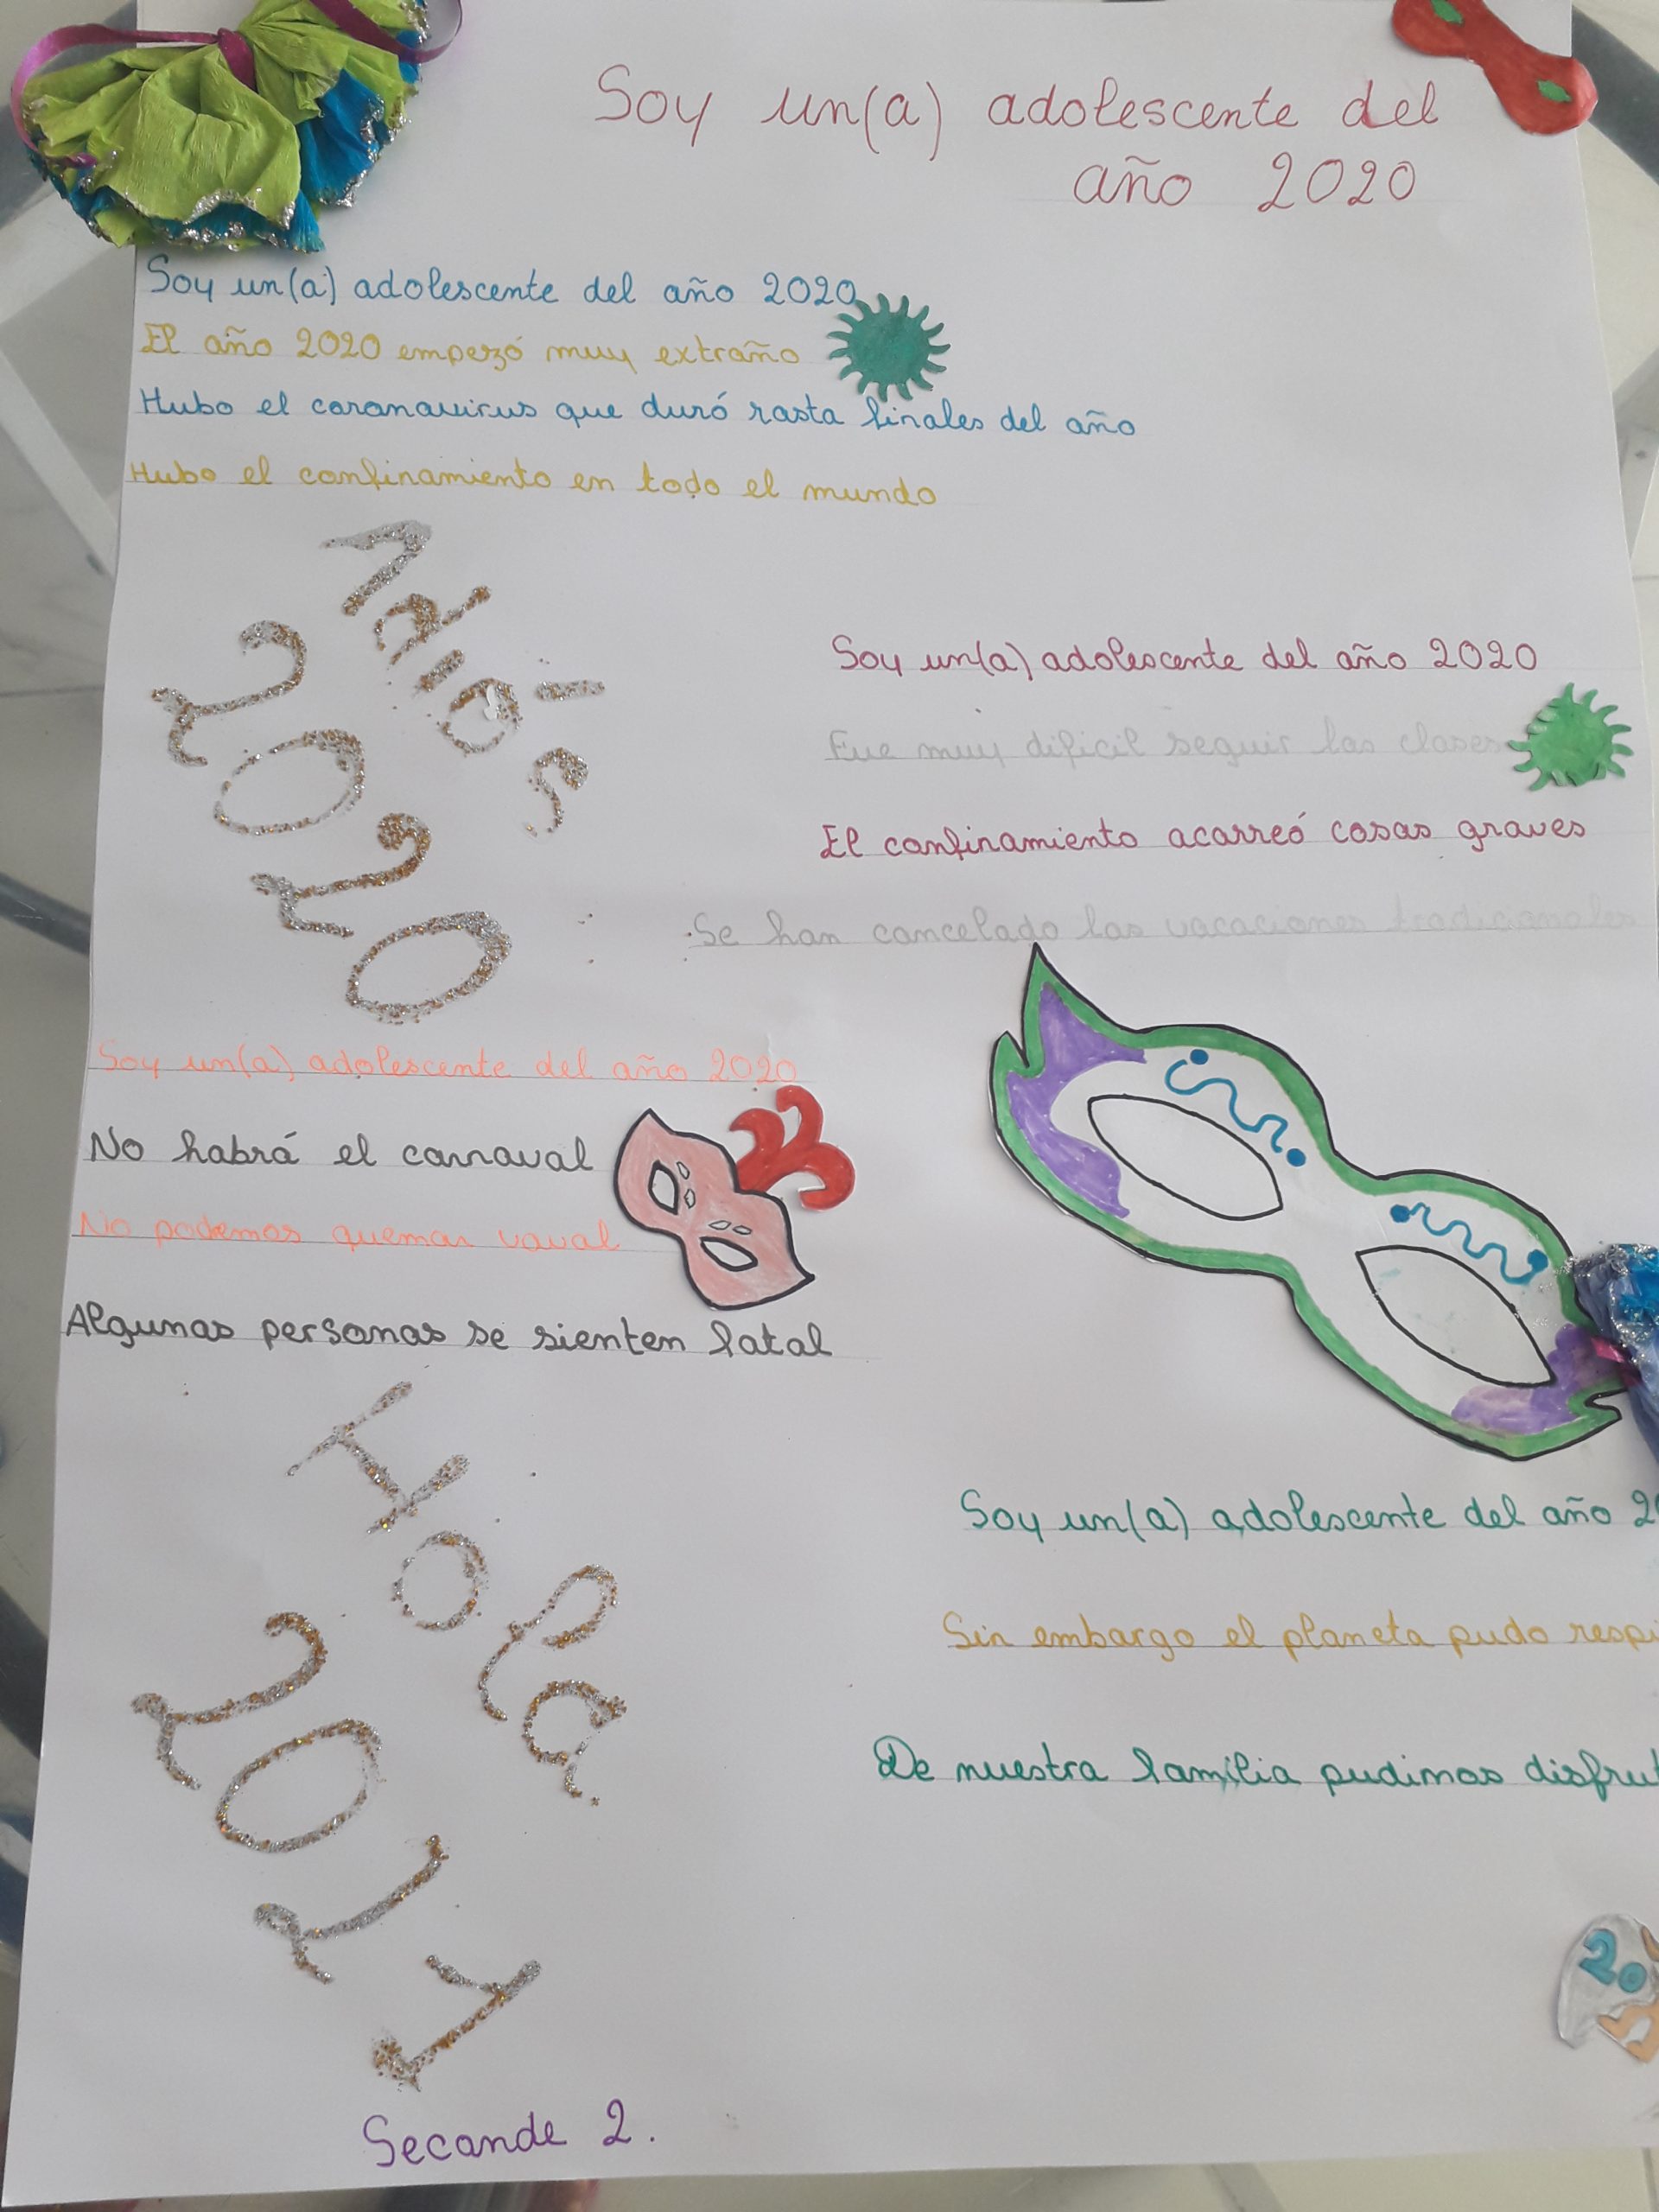 Soy un(a) adolescente del
año 2020
Soy un(a) adolescente del año 2020
El año 2020 empezó muy extraño
Hubo el coronavirus que duró rasta finales del año
Hubo el confinamiento en todo el mundo
Adiós
2020
Soy un(a) adolescente del año 2020
Fue muy dificil seguir las clases
El confinamiento acarreó cosas graves
Se han cancelado las vacaciones tradicionales
Soy un(a) adolescente del año 2020
No habrá el carnaval
No podemos quemar vaval
Algunas personas se sienten fatal
Hola
2021
Soy un(a) adolescente del año 20
Sin embargo el planeta pudo respi
De nuestra familia pudimos disfrut
20
Seconde 2.